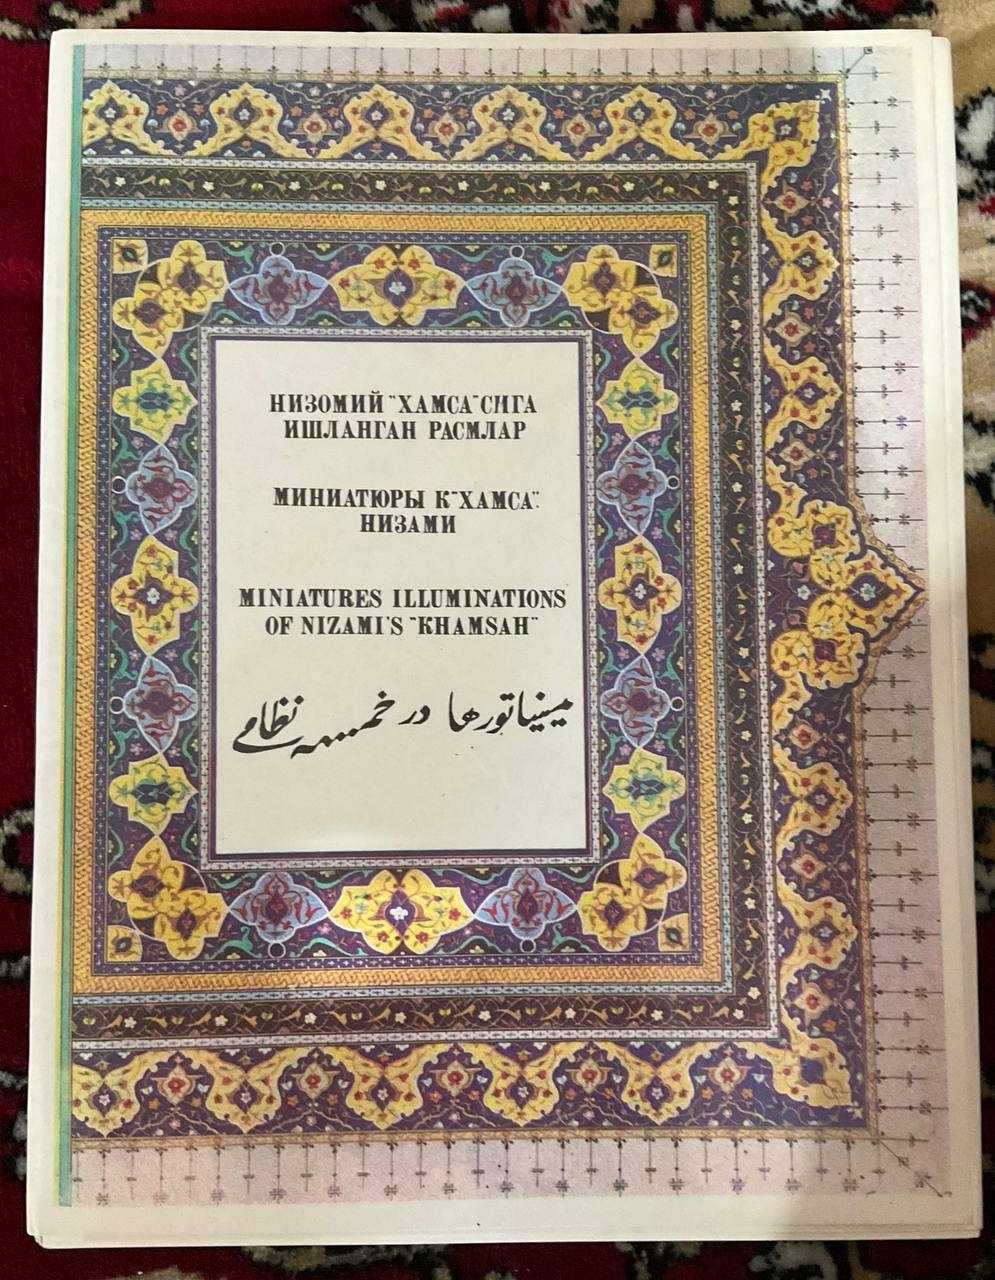 НИЗОМИЙ "ХАМСА"СИГА
ИШЛАНГАН РАСМЛАР
МИНИАТЮРЫ К "ХАМСА"
НИЗАМИ
MINIATURES ILLUMINATIONS
OF NIZAMI'S "KHAMSAH"
مینیاتورها در خمسه نظامی